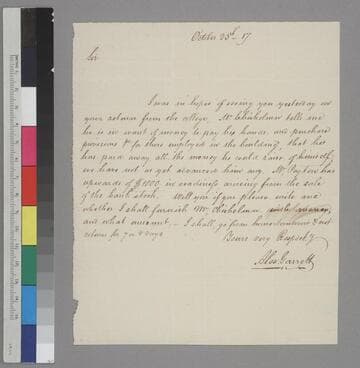 October 25th 17
Sir
I was in hopes of seeing you yesterday on
your return from the college. Mr Chisholman tells me
he is in want of money to pay his hands and purchase
provisions & for those employed in the building, that he
has paid away all the money he could borrow of himself,
we have not as yet advanced him any. Mr Peyton has
upwards of $1000 in readiness arising from the sale
of the bank stock. Will you if you please write me
whether I shall furnish Mr Chisholman
and what amount. — I shall go from home & not
return for 7 or 8 days
Yours very Respectfy
Alex: Garrett